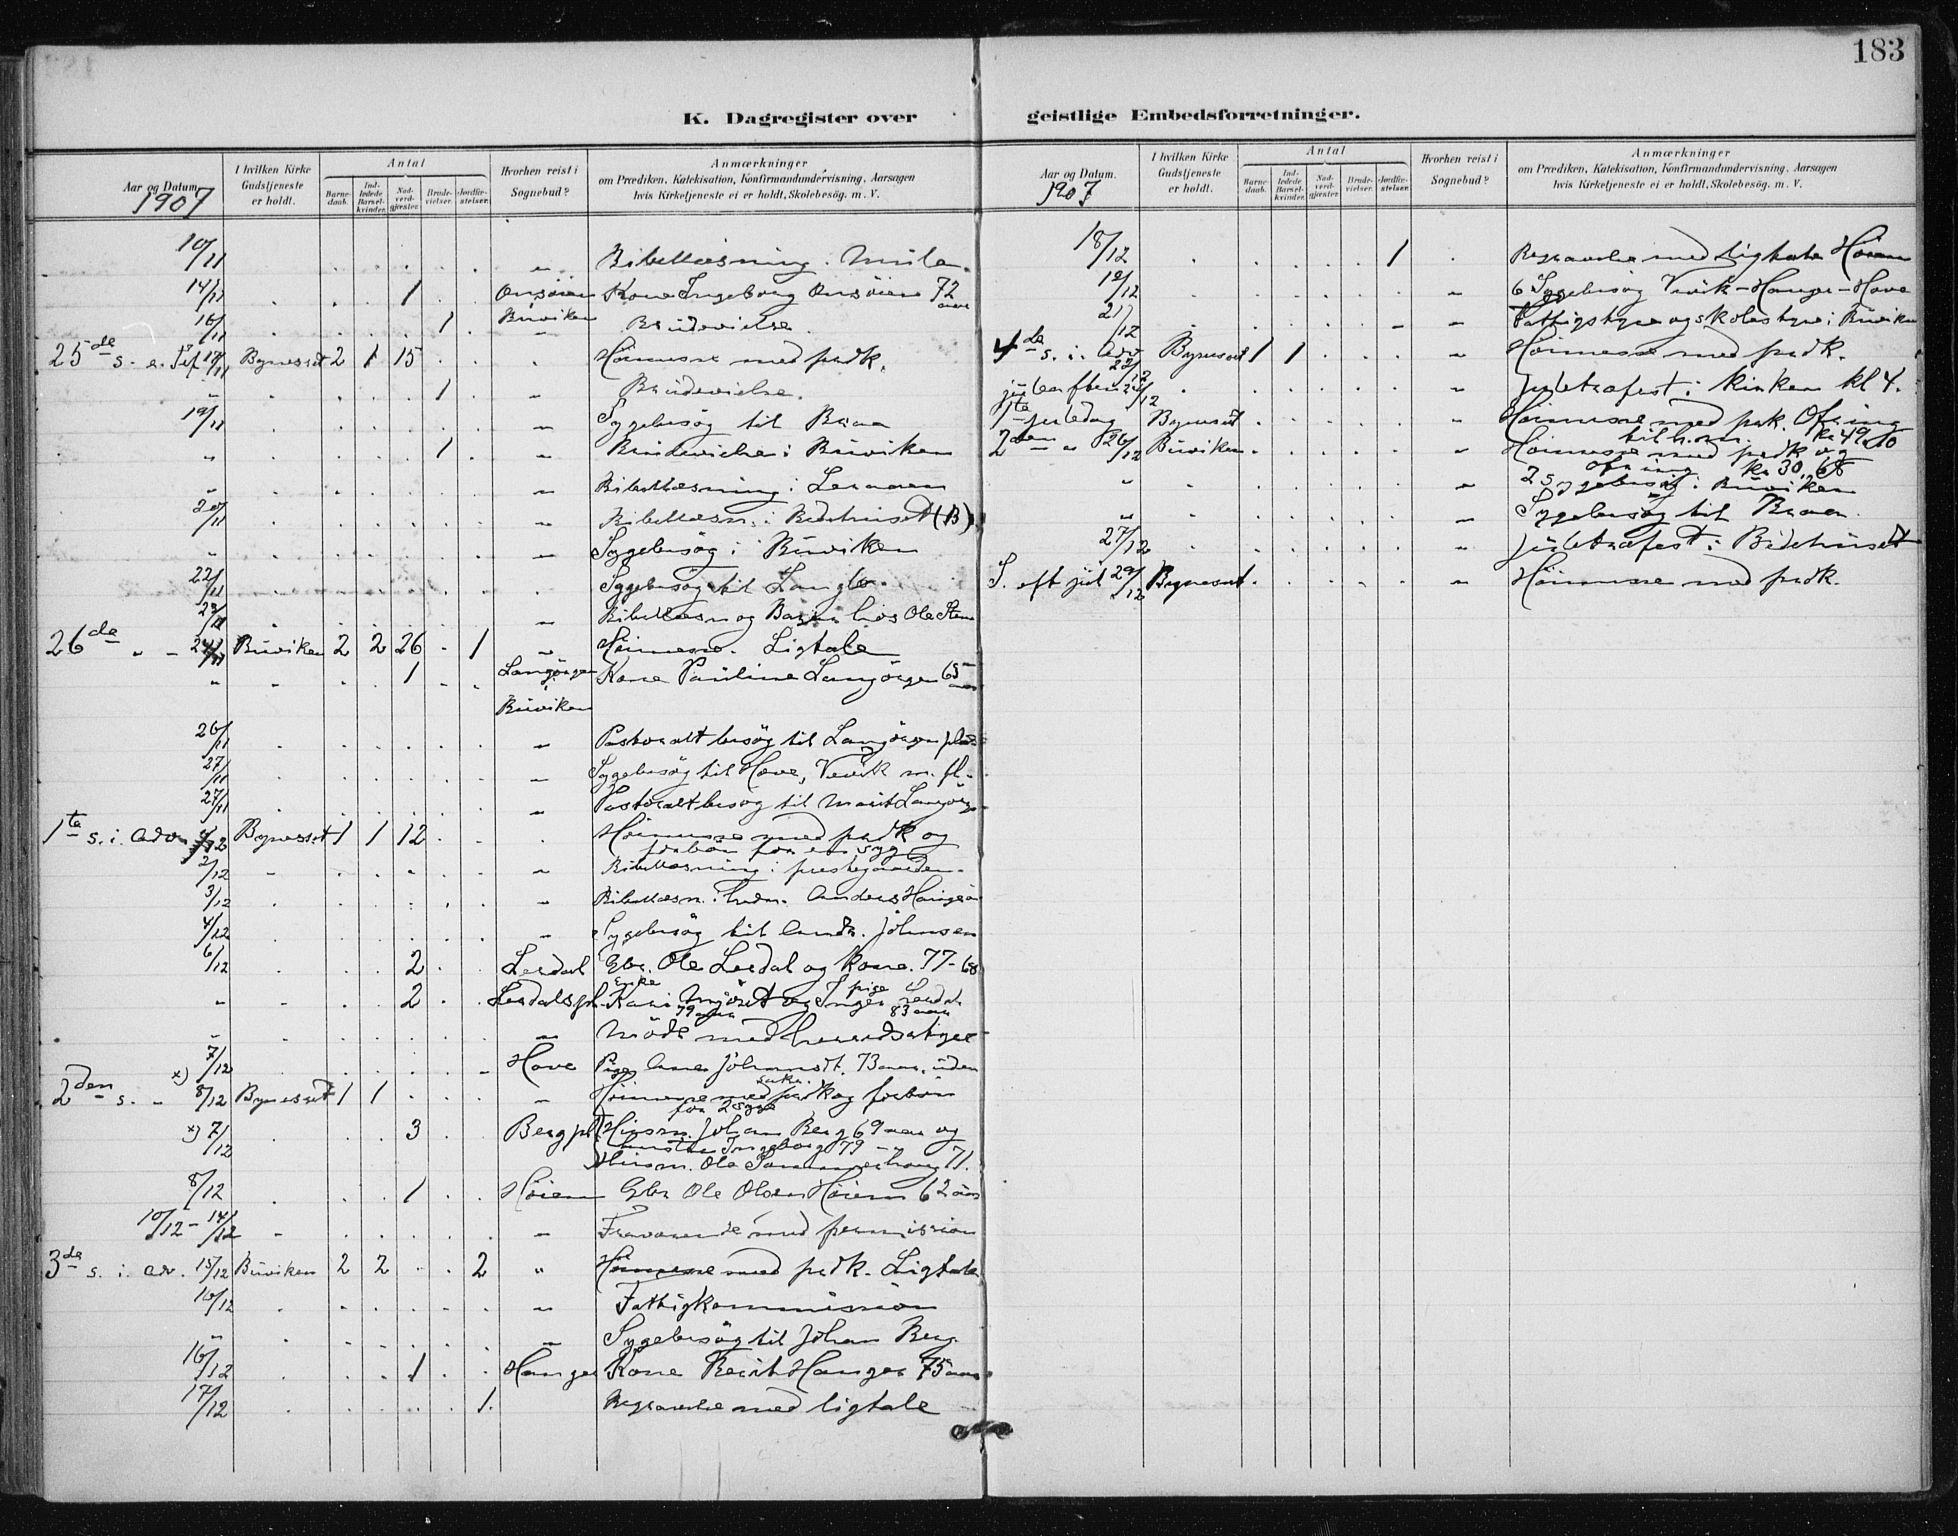 183
K. Dagregister over geistlige Embedsforretninger.
Aar og Datum.
1907
I hvilken Kirke Gudstjeneste er holdt.
Antal
Barnedaab.
Indledede Barselkvinder.
Nadverdgjæster.
Brudevielser.
Jordfæstelser.
Hvorhen reist i Sognebud?
Anmærkninger
om Prædiken, Katekisation, Konfirmandundervisning, Aarsagen
hvis Kirketjeneste ei er holdt, Skolebesøg. m. V.
10/11 " Bibellæsning. Mule.
14/11 1 Onsøien Kone Ingeborg Onsøien 72 aar
Buviken
16/11 1 " Brudevielse.
25de s. e. Tref 17/11 Bynesset 2 1 15 Høimesse med prædk.
" 1 " Brudevielse.
19/11 " Sygebesøg til Braa
" 1 " Brudevielse i Buviken
" " Bibellæsning i
20/11 " Bibellæsn. i Bedehuset (B)
" " Sygebesøg i Buviken
22/11 Sygebesøg til Langlo.
23/11 " Bibellæsn og hos Ole
26de " - 24/11 Buviken 2 2 26 1 " Høimesse. Ligtale
" 1 Langørgen Kone Pauline Langørgen 65 aar
Buviken
26/11 " Pastoralt besøg til Langørgen
27/11 " Sygebesøg til Hove, Vevik m. fl.
27/11 " Pastoralt besøg til Marit Langørg
1te s. i adv. 1/12 Bynesset 1 1 12 Høimesse med prdk og
forbøn for en syg
2/12 " Bibellæsning i prestegaarden.
3/12 " Bibellæsn. Anders
4/12 " Sygebesøg til Andr. Johnsen
6/12 2 Lerdal Gbr. Ole Lerdal og kone. 77-68
" 2 Lerdalspl. Enke Kari og pige Inger Lerdal
79 aar 83 aar
" " Møde med
x) 7/12 Hove Pige Ane Johannsdt. 73 aar. uden
2den s. " 8/12 Bynesset 1 1 " Høimesse med prdk og forbøn
for 2 syge
x) 7/12 3 Berg pl. Husm. Johan Berg 69 aar og
Ingeborg 79 - "
Husm. Ole 71.
8/12 1 Høiem Gbr Ole Olsen Høiem 62 aar
10/12 - 14/12 " Fraværende med permission
3de s. i adv. 15/12 Buviken 2 2 2 " Høimesse med prdk. Ligtale
10/12 " Fattigkommission
" " Sygebesøg til Johan Berg
16/12 1 Hanger Kone Berit Hanger 75 aar
17/12 1. Begravelse med ligtale
Aar og Datum.
1907
I hvilken Kirke Gudstjeneste er holdt.
Antal
Barnedaab.
Indledede Barselkvinder.
Nadverdgjæster.
Brudevielser.
Jordfæstelser.
Hvorhen reist i Sognebud?
Anmærkninger
om Prædiken, Katekisation, Konfirmandundervisning, Aarsagen
hvis Kirketjeneste ei er holdt, Skolebesøg. m. V.
18/12 1 Begravelse med ligtale Høiem
19/12 " 6 Sygebesøg Vevik-Hanger-Hove
21/12 " Fattigstyre og skolestyre i Buviken
4de s. i. Adv 22/12 Bynesset 1 1 " Høimesse med prdk.
juleaften 24/12 " juletræfest i kirken kl 4.
1te juledag Bynesset " Høimesse med prdk. Ofring
til h.m. kr 49.10
2den " 26/12 Buviken " Høimesse med prdk og
ofring kr 30,68
" " 2 Sygebesøg i Buviken
" " Sygebesøg til Braa
27/12 " juletræfest i Bedehuset
S. eft jul 29/12 Bynesset " Høimesse med prdk.